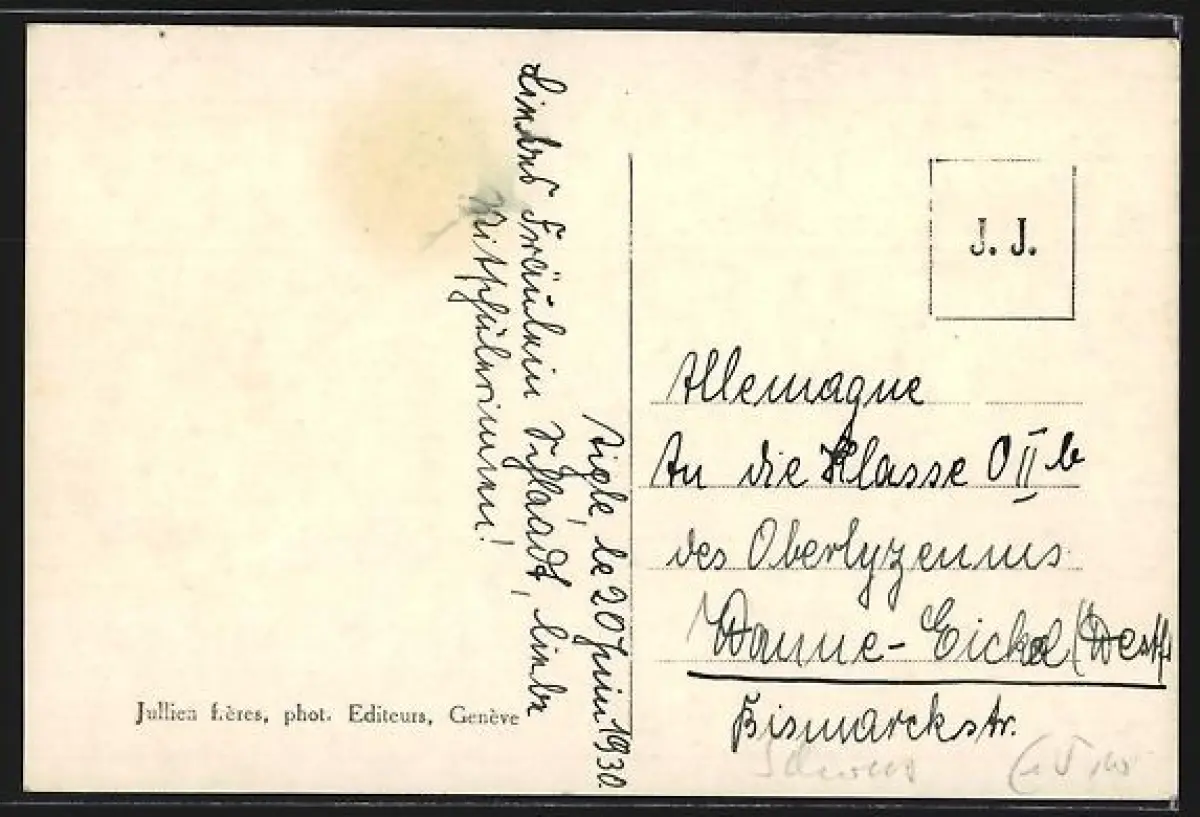 Aigle, le 20 Juin 1930
Liebes Fräulein liebe
Mitschülerinnen!
J. J.
Allemagne
An die Klasse O II b
des Oberlyzeums
Wanne-Eickel (Westf.
Bismarckstr.
Jullien frères, phot. Editeurs, Genève